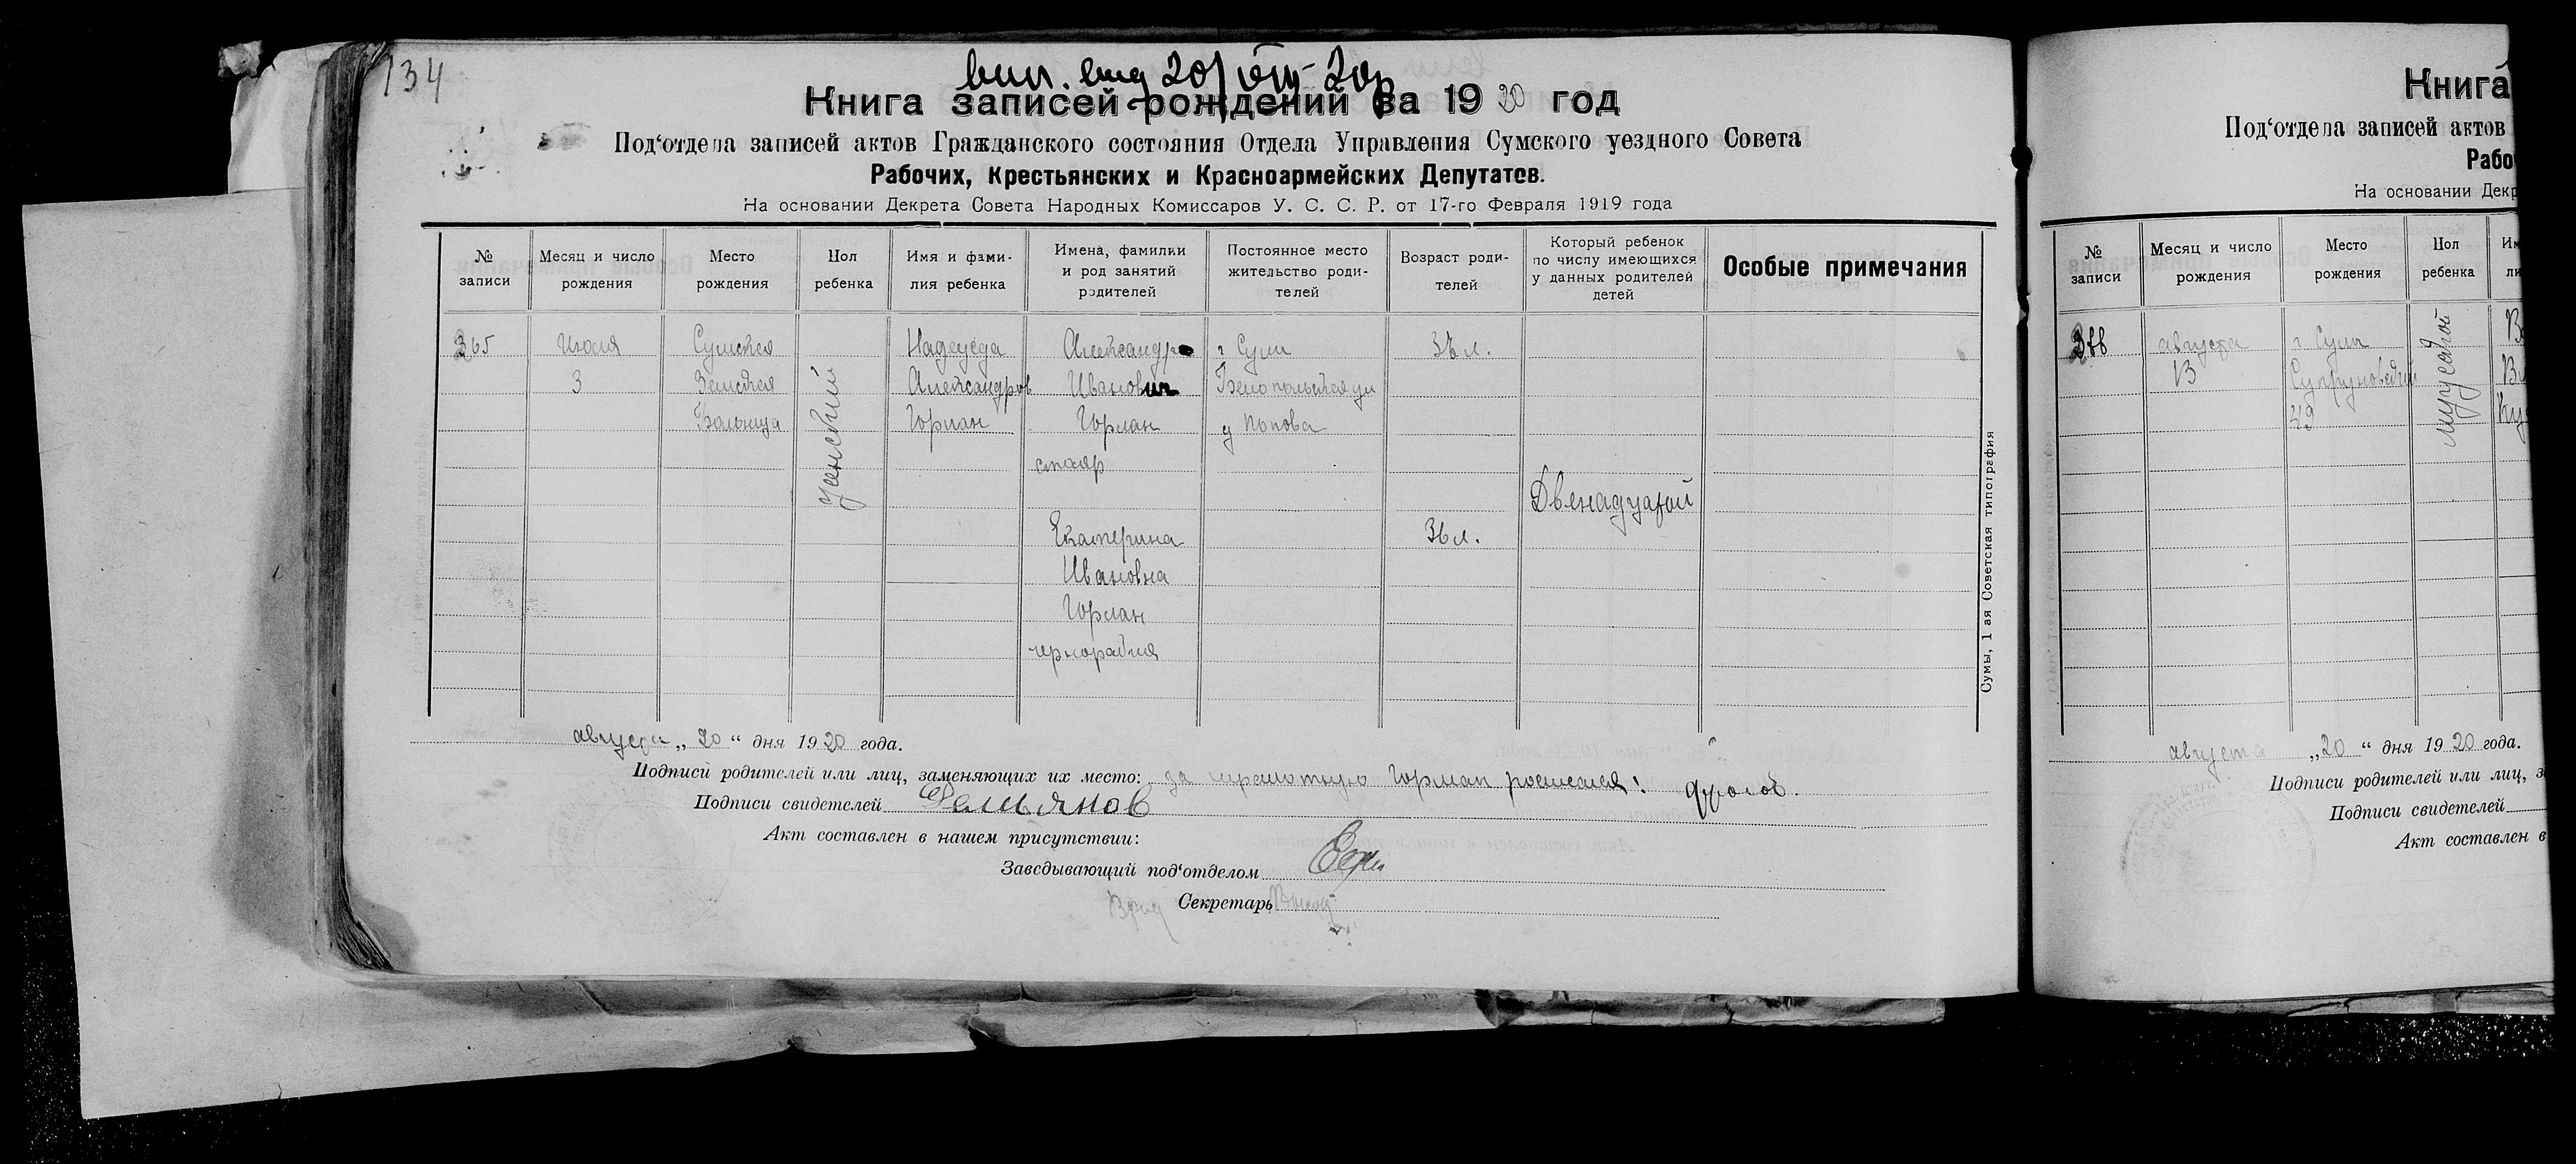 134
вып. вид 20/VIII-20р
Книга записей рождений за 1920 год
Под‘отдела записей актов Гражданского состояния Отдела Управления Сумского уездного Совета
Рабочих, Крестьянских и Красноармейских Депутатов.
На основании Декрета Совета Народных Комиссаров У. С. С. Р. от 17-го Февраля 1919 года
№ записи
Месяц и число рождения
Место рождения
Пол ребенка
Имя и фамилия ребенка
Имена, фамилии и род занятий родителей
Постоянное место жительство родителей
Возраст родителей
Который ребенок по числу имеющихся у данных родителей детей
Особые примечания
365
Июля
3
Сумская
Земская
Больница
Женский
Надежда
Александров
Горман
Александр
Иванович
Горман
столяр
Екатерина
Ивановна
Горман
чернорабчая
г Сумы
Белопольская ул
у Попова
36 л.
Двенадцатой
Сумы, 1 ая Советская типография
августа „20“ дня 1920 года.
Подписи родителей или лиц, заменяющих их место: за неграмотную Горман росписался: Фролов.
Подписи свидетелей Демьянов
Акт составлен в нашем присутствии:
Заведывающий под‘отделом
Врид Секретарь
Книга
Под‘отдела записей актов
Рабо
На основании Декр
№ записи
Месяц и число рождения
Место рождения
Пол ребенка
августа
13
г Сумы
Супруновская
49
мужской
августа „20“ дня 1920 года.
Подписи родителей или лиц, з
Подписи свидетелей
Акт составлен в